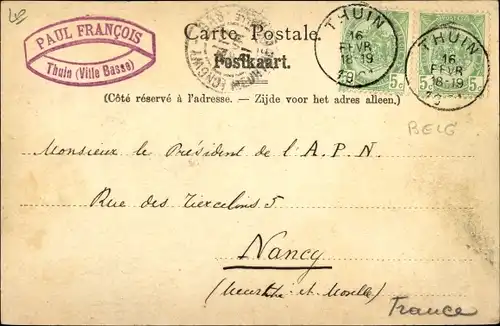 PAUL FRANÇOIS
Thuin (Ville Basse)
Carte Postale.
Postkaart.
THUIN
16
FEVR
18-19
5c
THUIN
16
FEVR
18-19
5c
(Côté réservé à l'adresse. – Zijde voor het adres alleen.)
BELG
Monsieur le Président de l'A.P.N.
Rue des Tiercelins 5
Nancy
(Meurthe et Moselle)
France